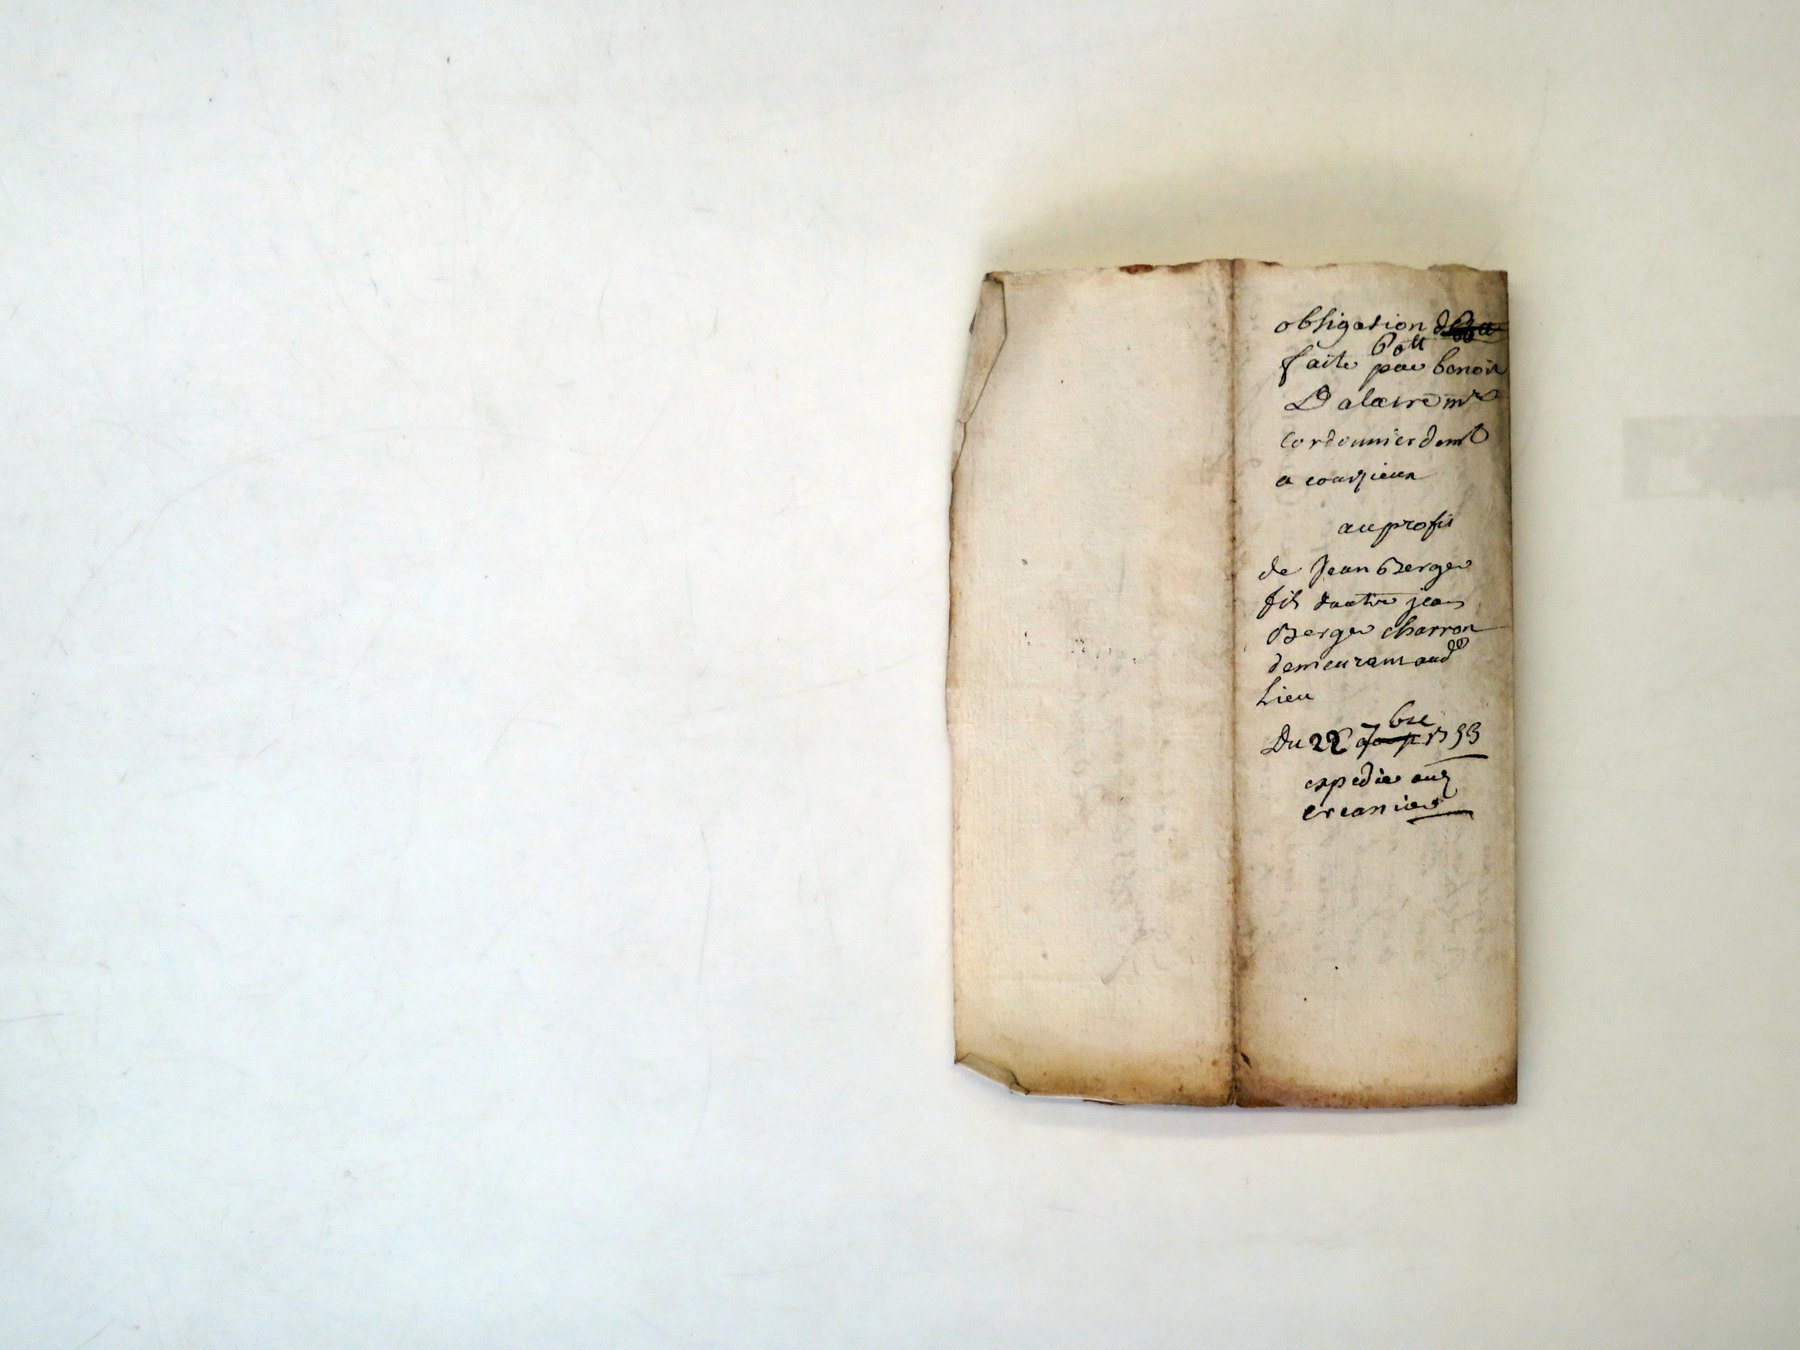 obligation de
60tt
faite par benoit
Dalaire me
cordonnier demt
a courzieux
au profit
de Jean Berger
fils d'autre jean
Berger charron
demeurant aud
Lieu
bre
Du 22 7 1753
expedié au
creancier